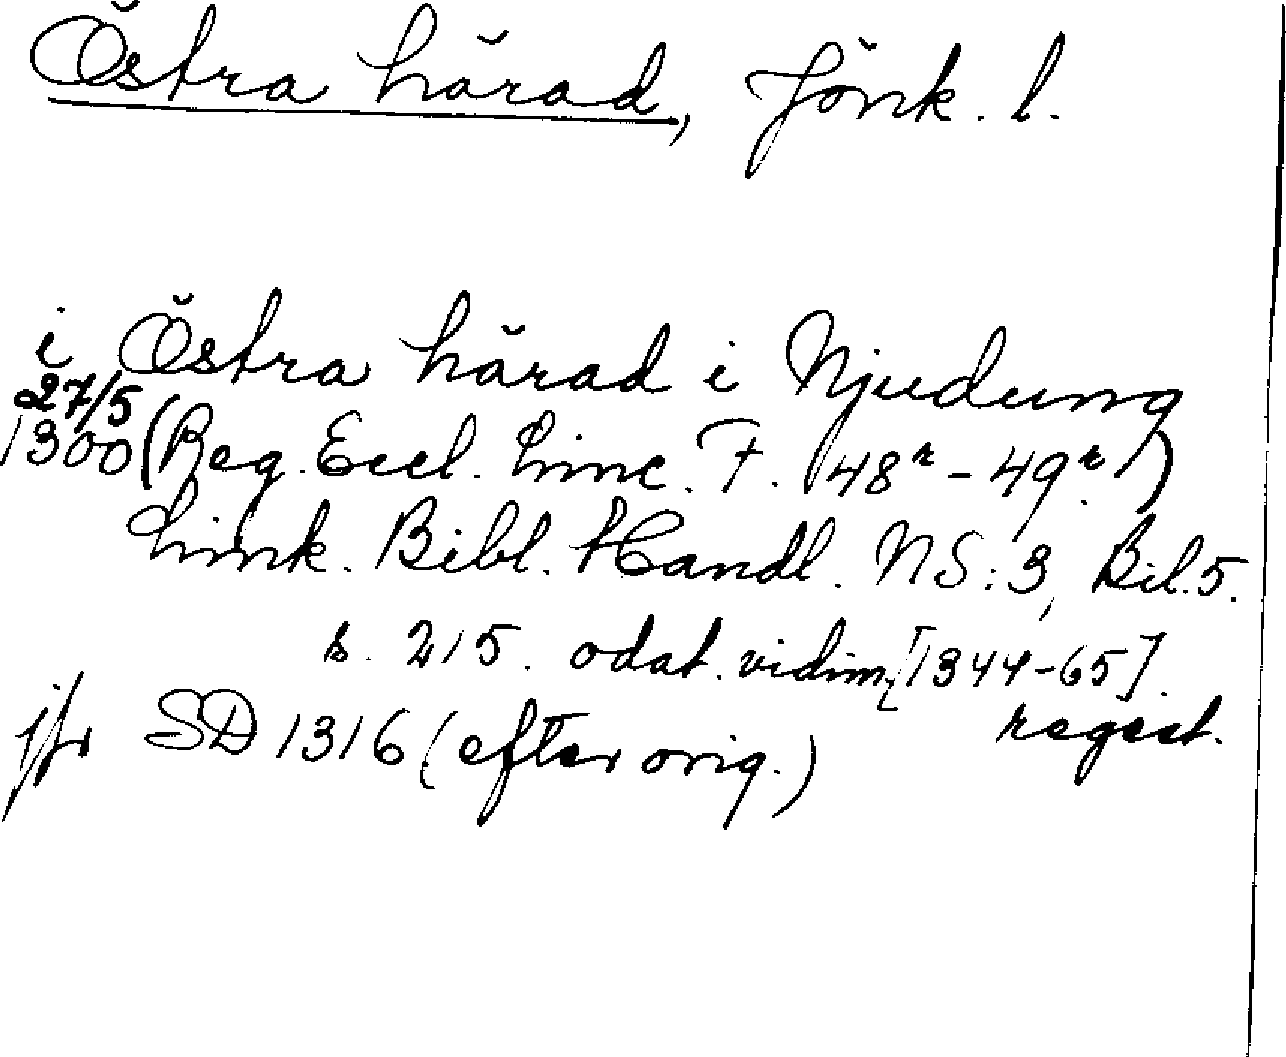 Östra härad, Jönk. l.
i Östra härad i Njudung
27/5
1300 (Reg. Eccl. Linc. F. 48r - 49r)
Link. Bibl. Handl. NS: 3, Bil. 5.
s. 215. odat. vidim. [1344-65].
regest.
jfr SD 1316 (efter orig.)